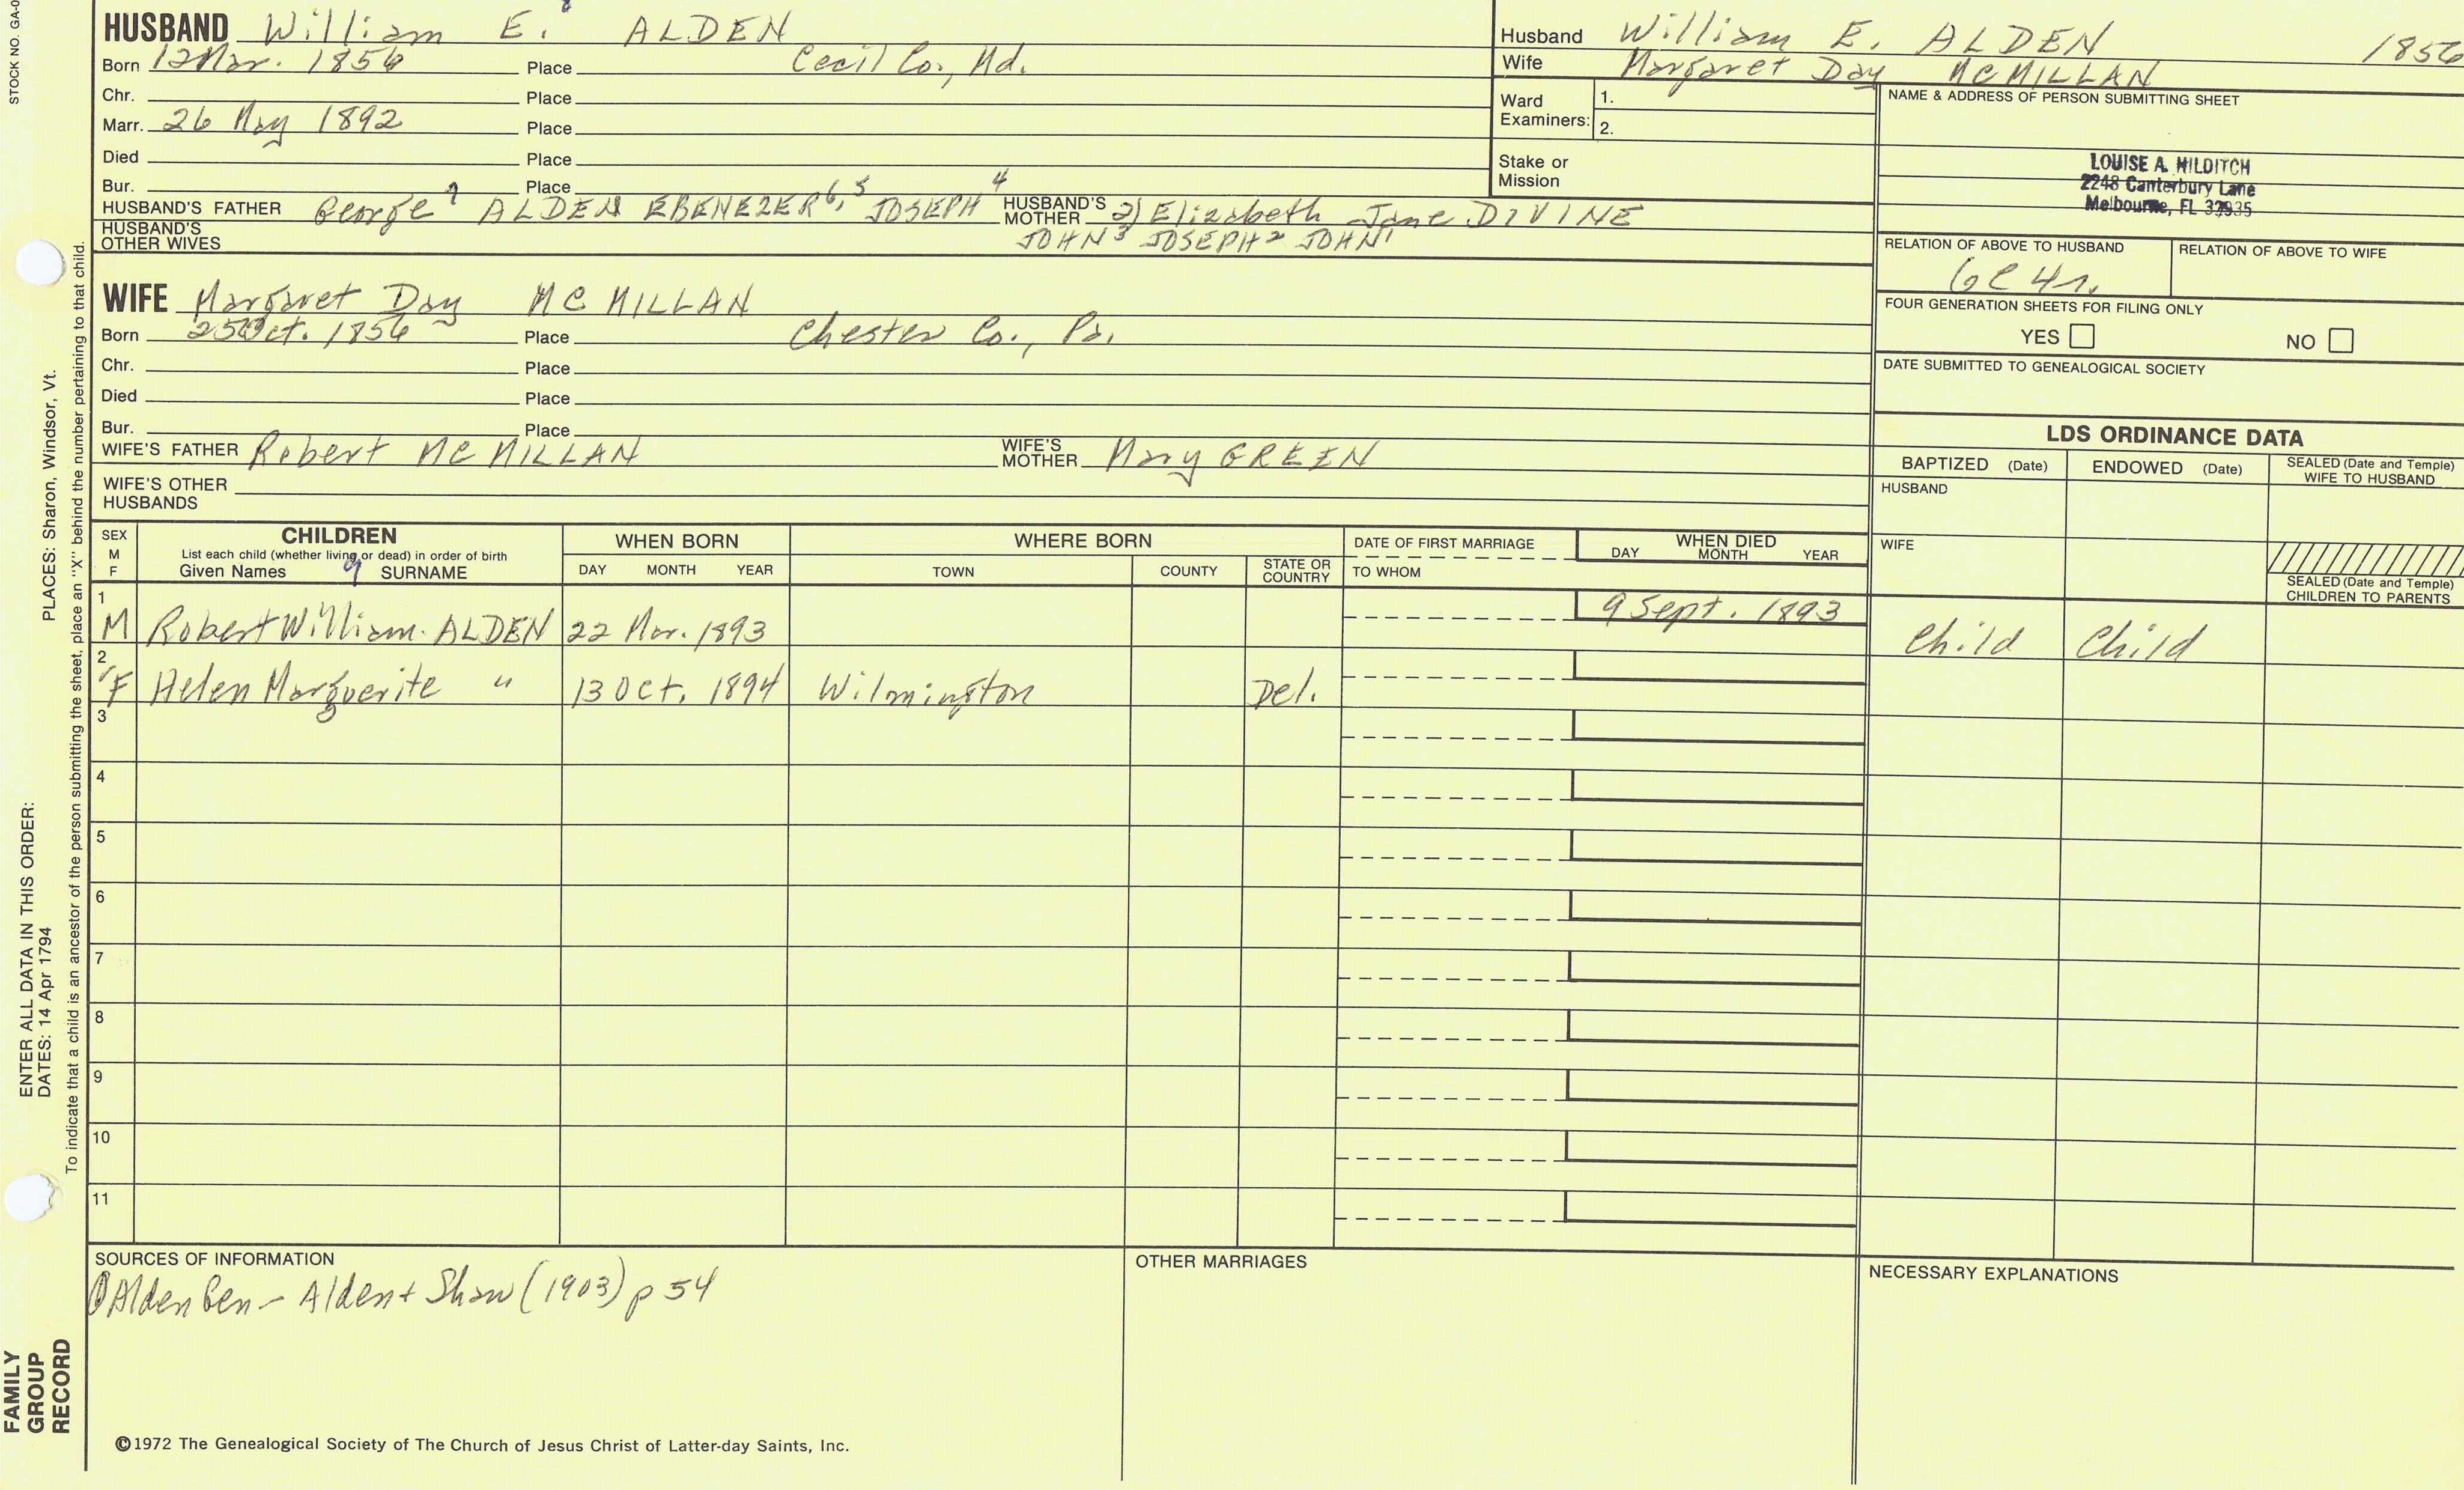 STOCK NO. GA-0
HUSBAND William E. 8 ALDEN
Born 12 Mar. 1856 Place Cecil Co., Md.
Chr. Place
Marr. 26 May 1892 Place
Died Place
Bur. Place
HUSBAND'S FATHER George 7 ALDEN EBENEZER 6, 5 JOSEPH 4 HUSBAND'S MOTHER 2) Elizabeth Jane DIVINE
HUSBAND'S OTHER WIVES JOHN 3 JOSEPH 2 JOHN 1
WIFE Margaret Day MC MILLAN
Born 25 Oct. 1856 Place Chester Co., Pa.
Chr. Place
Died Place
Bur. Place
WIFE'S FATHER Robert MC MILLAN WIFE'S MOTHER Mary GREEN
WIFE'S OTHER HUSBANDS
Husband William E. ALDEN 1856
Wife Margaret Day MC MILLAN
Ward Examiners: 1.
2.
Stake or Mission
NAME & ADDRESS OF PERSON SUBMITTING SHEET
LOUISE A. HILDITCH
2248 Canterbury Lane
Melbourne, FL 32935
RELATION OF ABOVE TO HUSBAND RELATION OF ABOVE TO WIFE
6C4r.
FOUR GENERATION SHEETS FOR FILING ONLY
YES NO
DATE SUBMITTED TO GENEALOGICAL SOCIETY
LDS ORDINANCE DATA
BAPTIZED (Date) ENDOWED (Date) SEALED (Date and Temple) WIFE TO HUSBAND
HUSBAND
WIFE
SEALED (Date and Temple) CHILDREN TO PARENTS
SEX M F
CHILDREN
List each child (whether living or dead) in order of birth
Given Names 9 SURNAME
WHEN BORN
DAY MONTH YEAR
WHERE BORN
TOWN COUNTY STATE OR COUNTRY
DATE OF FIRST MARRIAGE
TO WHOM
WHEN DIED
DAY MONTH YEAR
1 M Robert William ALDEN 22 Mar. 1893 9 Sept. 1893 Child Child
2 F Helen Marguerite " 13 Oct. 1894 Wilmington Del.
3
4
5
6
7
8
9
10
11
SOURCES OF INFORMATION
Alden Gen - Alden + Shaw (1903) p 54
OTHER MARRIAGES
NECESSARY EXPLANATIONS
©1972 The Genealogical Society of The Church of Jesus Christ of Latter-day Saints, Inc.
FAMILY
GROUP
RECORD
ENTER ALL DATA IN THIS ORDER:
DATES: 14 Apr 1794
PLACES: Sharon, Windsor, Vt.
To indicate that a child is an ancestor of the person submitting the sheet, place an "X" behind the number pertaining to that child.